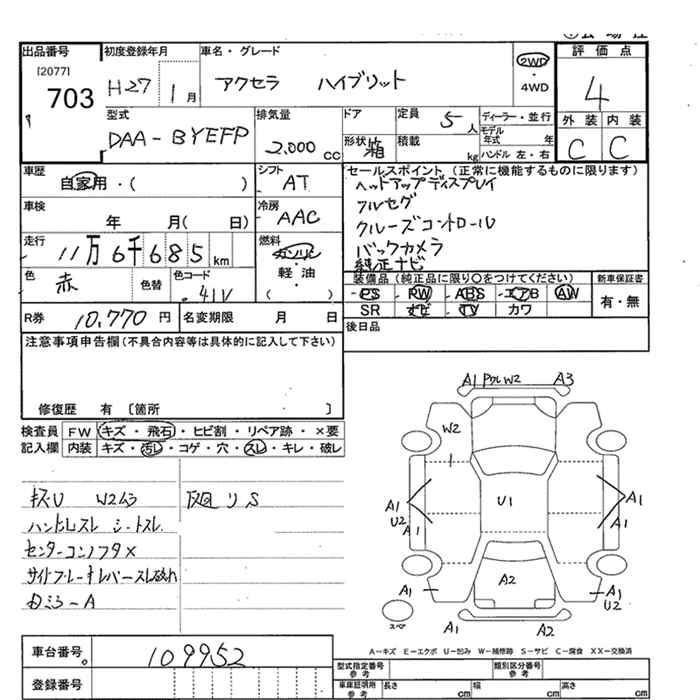 出品番号 初度登録年月 車名・グレード 評価点
[2077]
703 H27 1月 アクセラ ハイブリット 2WD・4WD 4
型式 排気量 ドア 定員 5人 ディーラー・並行 外装 内装
DAA-BYEFP 2,000cc 形状 箱 積載 kg モデル年式 年 ハンドル 左・右 C C
車歴 自家用・( ) シフト AT セールスポイント (正常に機能するものに限ります)
ヘットアップディスプレイ
車検 年 月( 日) 冷房 AAC フルセグ
クルーズコントロール
走行 11万6千685km 燃料 ガソリン・軽油・( ) バックカメラ
純正ナビ
色 赤 色替 色コード 41V 装備品 (純正品に限り○をつけてください) 新車保証書
・PS ・PW ・ABS ・エアB AW 有・無
R券 10,770円 名変期限 月 日 SR ナビ TV カワ
注意事項申告欄 (不具合内容等は具体的に記入して下さい) 後日品
修復歴 有 〔箇所 〕
検査員 FW キズ・飛石・ヒビ割・リペア跡・×要
記入欄 内装 キズ・汚レ・コゲ・穴・スレ・キレ・破レ
A1 W2 A3
W2
U1
A1 U2 A1
A1 A1
A2
A1 A1 U2
スペア A1 A2
キズU
ハンドルスレ シートスレ
A-キズ E-エクボ U-凹み W-補修跡 S-サビ C-腐食 XX-交換済
車台番号 109952
登録番号
型式指定番号 参考 類別区分番号 参考
車庫証明用 参考 長さ cm 幅 cm 高さ cm